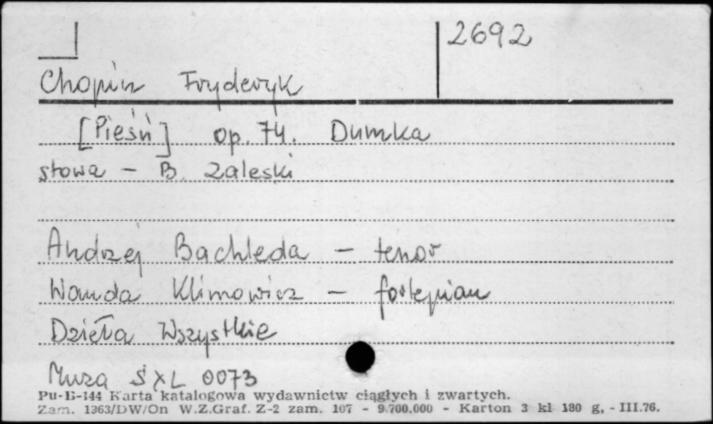 2692
Chopin Fryderyk
[Pieśń] op. 74. Dumka
słowa - B. Zaleski
Andrzej Bachleda - tenor
Wanda Klimowicz - fortepian
Dzieła Wszystkie
Muza SXL 0073
Pu-B-144 Karta katalogowa wydawnictw ciągłych i zwartych.
Zam. 1363/DW/On W.Z.Graf. Z-2 zam. 107 - 9.700.000 - Karton 3 kl 180 g. - III.76.